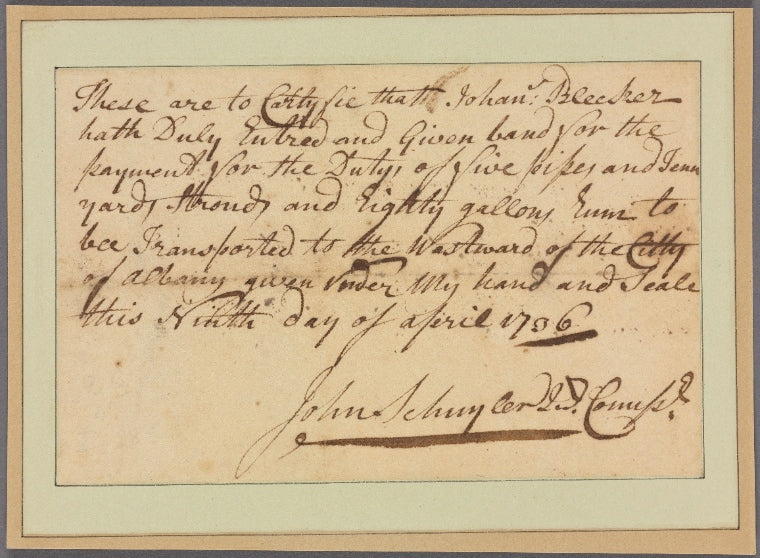 These are to Certyfie that Johans: Bleecker
hath Duly Entred and Given band for the
payment for the Dutys of five pipes and Tenn
yards Strouds and Eighty gallons Rum to
bee Transported to the Wastward of the Citty
of Albany given Under My hand and Seale
this Ninth day of april 1736
John Schuyler Jur. Comisr.